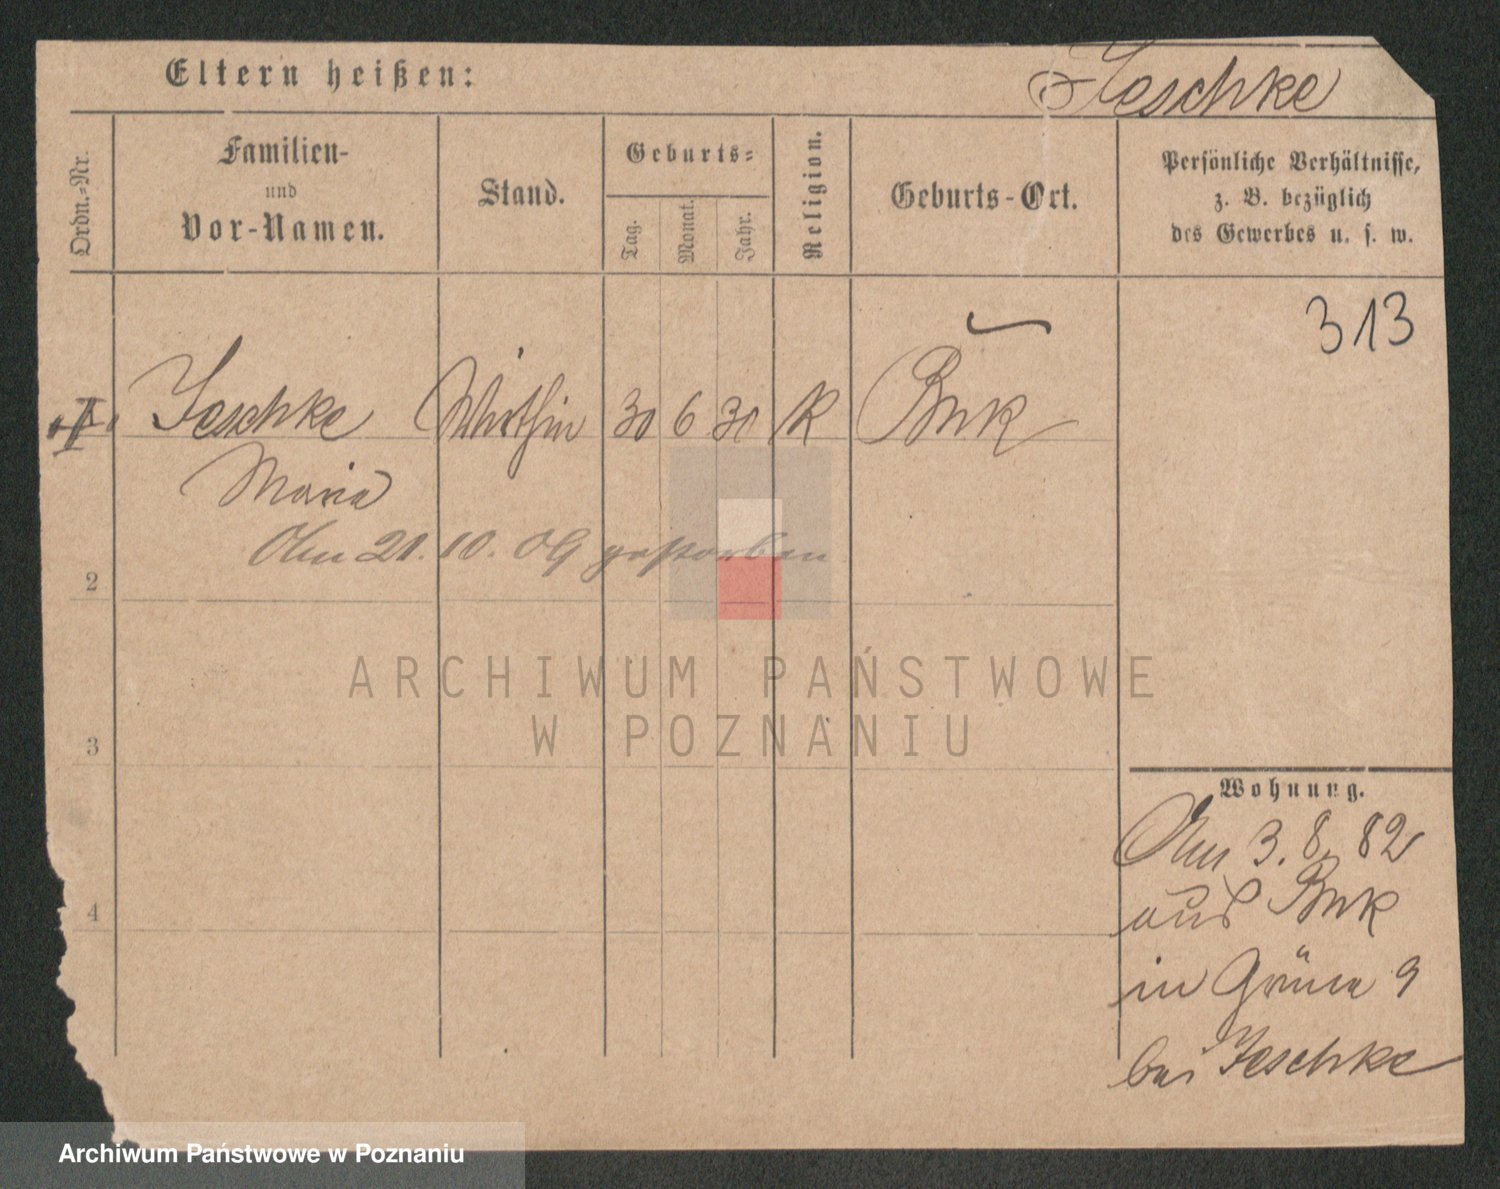 Eltern heißen:
Jeschke
Ordn.-Nr.
Familien-
und
Vor-Namen.
Stand.
Geburts-
Tag.
Monat.
Jahr.
Religion.
Geburts-Ort.
Persönliche Verhältnisse,
z. B. bezüglich
des Gewerbes u. s. w.
313
Jeschke Wirthin 30 6 30 K Buk
Maria
Am 21. 10. 09 gestorben
2
3
4
Wohnung.
Am 3. 8. 82
aus Buk
in Grüne 9
bei Jeschke
ARCHIWUM PAŃSTWOWE
W POZNANIU
Archiwum Państwowe w Poznaniu